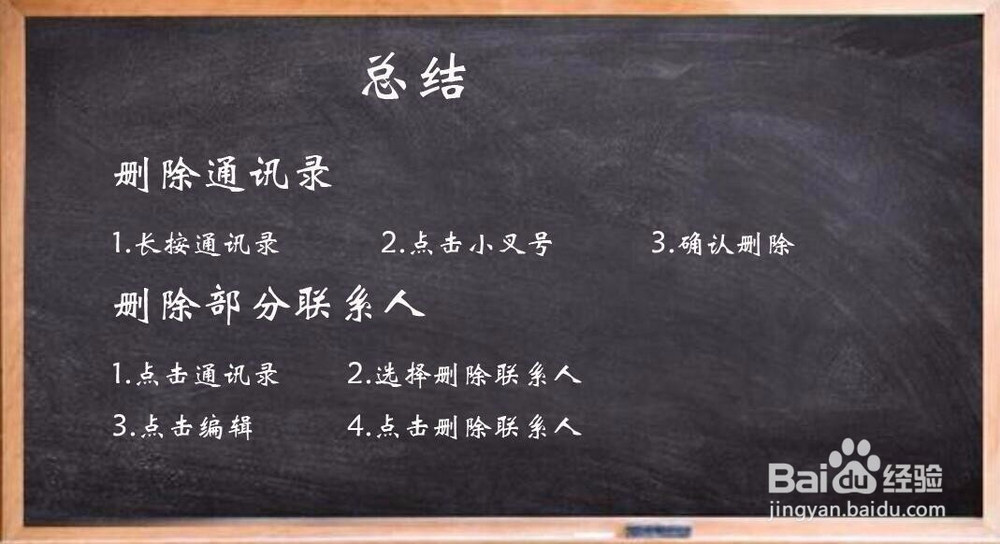 总结
删除通讯录
1.长按通讯录 2.点击小叉号 3.确认删除
删除部分联系人
1.点击通讯录 2.选择删除联系人
3.点击编辑 4.点击删除联系人
Baidu经验
jingyan.baidu.com